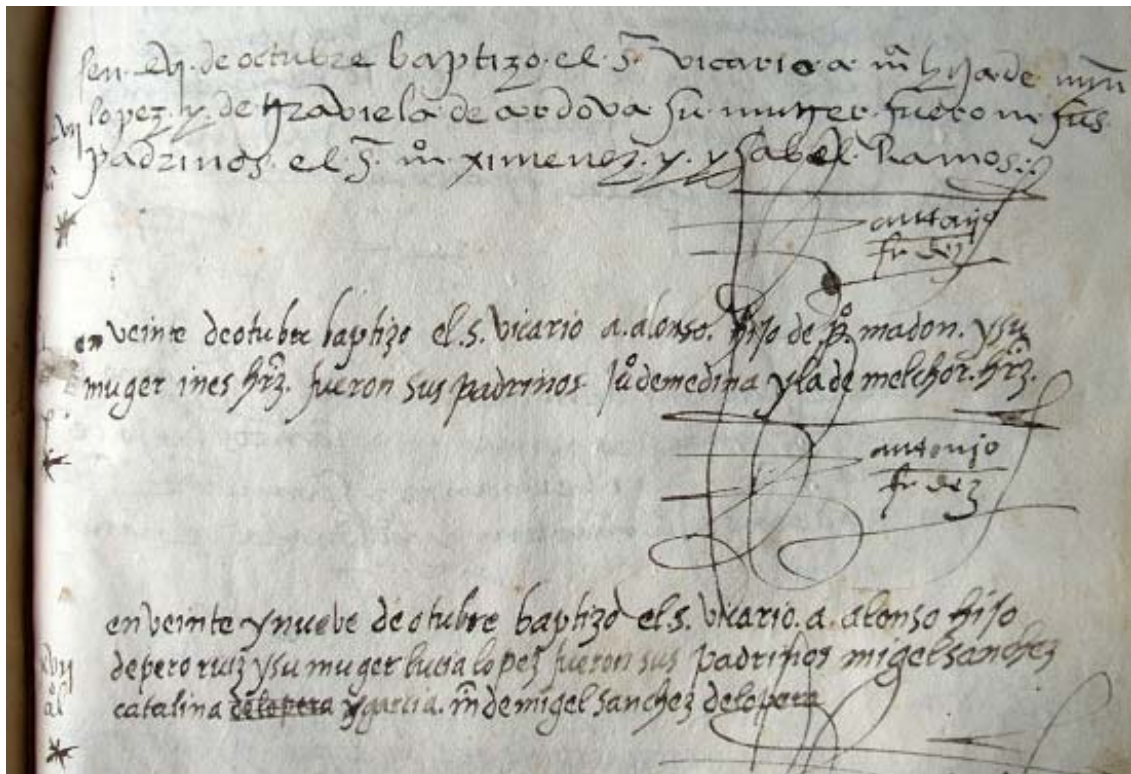 de octubre baptizo el s. vicario a mª hija de mīn
lopez y de graviela de cordova su muger fueron sus
padrinos el s. mº ximenez y ysabel Ramos
antonjo
frdez
en veinte de otubre baptizo el.s. vicario a.alonso. hijo de pº. madon. ysu
muger ines hrz. fueron sus padrinos Juº demedina ylade melchor. hrz.
antonjo
frdez
en veinte y nueve de otubre baptizo el s. vicario.a. alonso hijo
depero ruiz ysu muger lucia lopez fueron sus padrinos migel sanchez
catalina delopera y garcia. de migel sanchez delopera